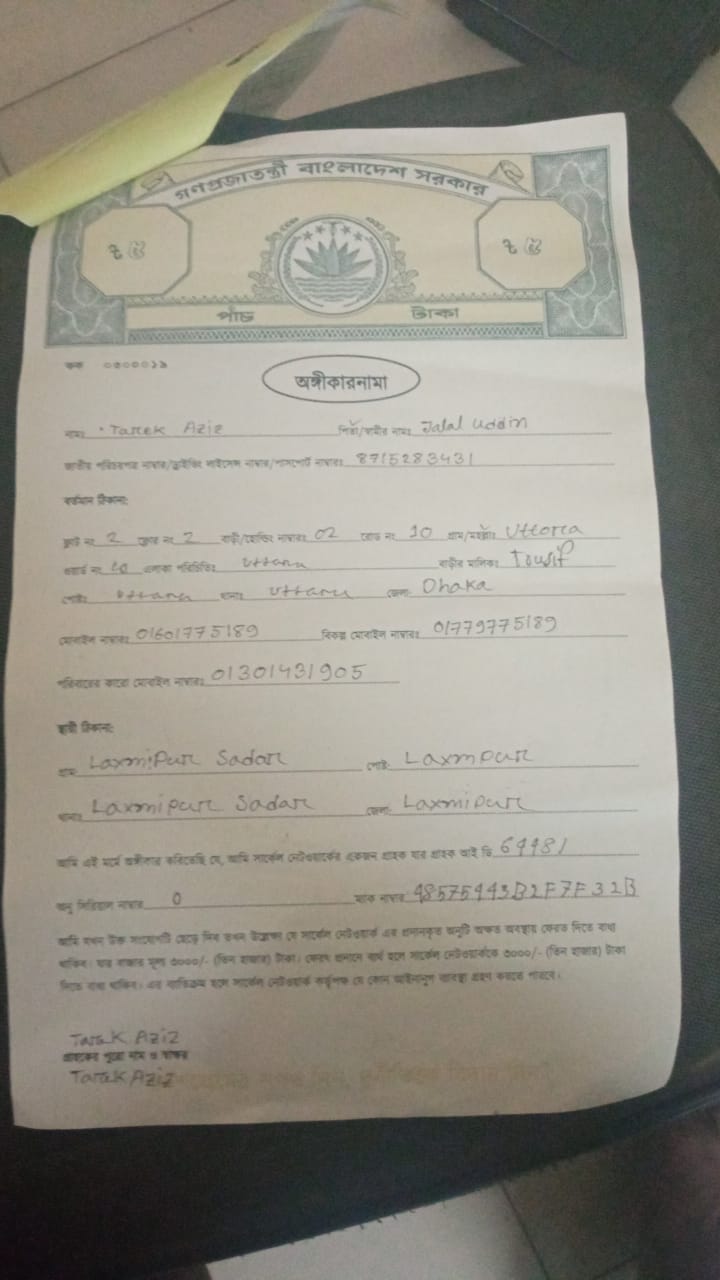 গণপ্রজাতন্ত্রী বাংলাদেশ সরকার
৳ ৫ ৳ ৫
পাঁচ টাকা
কক ০৩০০০১৯
অঙ্গীকারনামা
নামঃ Tarek Aziz পিতা/স্বামীর নামঃ Jalal Uddin
জাতীয় পরিচয়পত্র নাম্বার/ড্রাইভিং লাইসেন্স নাম্বার/পাসপোর্ট নাম্বারঃ 8715283431
বর্তমান ঠিকানা:
ফ্ল্যাট নং 2 ফ্লোর নং 2 বাড়ী/হোল্ডিং নাম্বারঃ 02 রোড নং 10 গ্রাম/মহল্লাঃ Uttora
ওয়ার্ড নং 10 এলাকা পরিচিতিঃ Uttara বাড়ীর মালিকঃ Tousif
পোষ্টঃ Uttara থানাঃ Uttara জেলা: Dhaka
মোবাইল নাম্বারঃ 01601775189 বিকল্প মোবাইল নাম্বারঃ 01779775189
পরিবারের কারো মোবাইল নাম্বারঃ 01301431905
স্থায়ী ঠিকানা:
গ্রামঃ Laxmipur Sadar পোষ্টঃ Laxmpur
থানাঃ Laxmipur Sadar জেলা: Laxmipur
আমি এই মর্মে অঙ্গীকার করিতেছি যে, আমি সার্কেল নেটওয়ার্কের একজন গ্রাহক যার গ্রাহক আই ডি 64481
অনু সিরিয়াল নাম্বার 0 ম্যাক নাম্বার 48575443B2F7F32B
আমি যখন উক্ত সংযোগটি ছেড়ে দিব তখন উল্লেখ্য যে সার্কেল নেটওয়ার্ক এর প্রদানকৃত অনুটি অক্ষত অবস্থায় ফেরত দিতে বাধ্য
থাকিব। যার বাজার মূল্য ৩০০০/- (তিন হাজার) টাকা। ফেরৎ প্রদানে ব্যর্থ হলে সার্কেল নেটওয়ার্ককে ৩০০০/- (তিন হাজার) টাকা
দিতে বাধ্য থাকিব। এর ব্যতিক্রম হলে সার্কেল নেটওয়ার্ক কর্তৃপক্ষ যে কোন আইনানুগ ব্যবস্থা গ্রহণ করতে পারবে।
Tarek Aziz
গ্রাহকের পুরো নাম ও স্বাক্ষর
Tarek Aziz